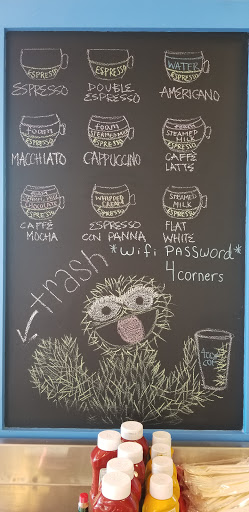 ESPRESSO
ESPRESSO
ESPRESSO
DOUBLE
ESPRESSO
WATER
ESPRESSO
AMERICANO
foam
ESPRESSO
MACCHIATO
FOAM
STEAMED MILK
ESPRESSO
CAPPUCCINO
STEAMED
MILK
ESPRESSO
CAFFÈ
LATTE
CHOCOLATE
ESPRESSO
CAFFÈ
MOCHA
WHIPPED
CREAM
ESPRESSO
ESPRESSO
CON PANNA
STEAMED
MILK
ESPRESSO
FLAT
WHITE
*Wifi PASSWORD*
4corners
trash